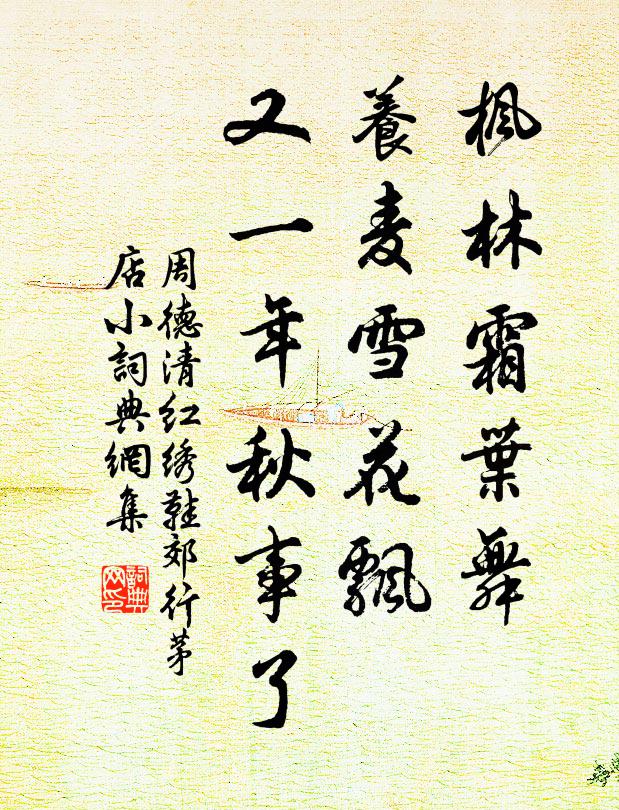 枫林霜葉舞
養麦雪花飄
又一年秋事了
周德清红绣鞋郊行茅
店小詞典網集
詞典网印